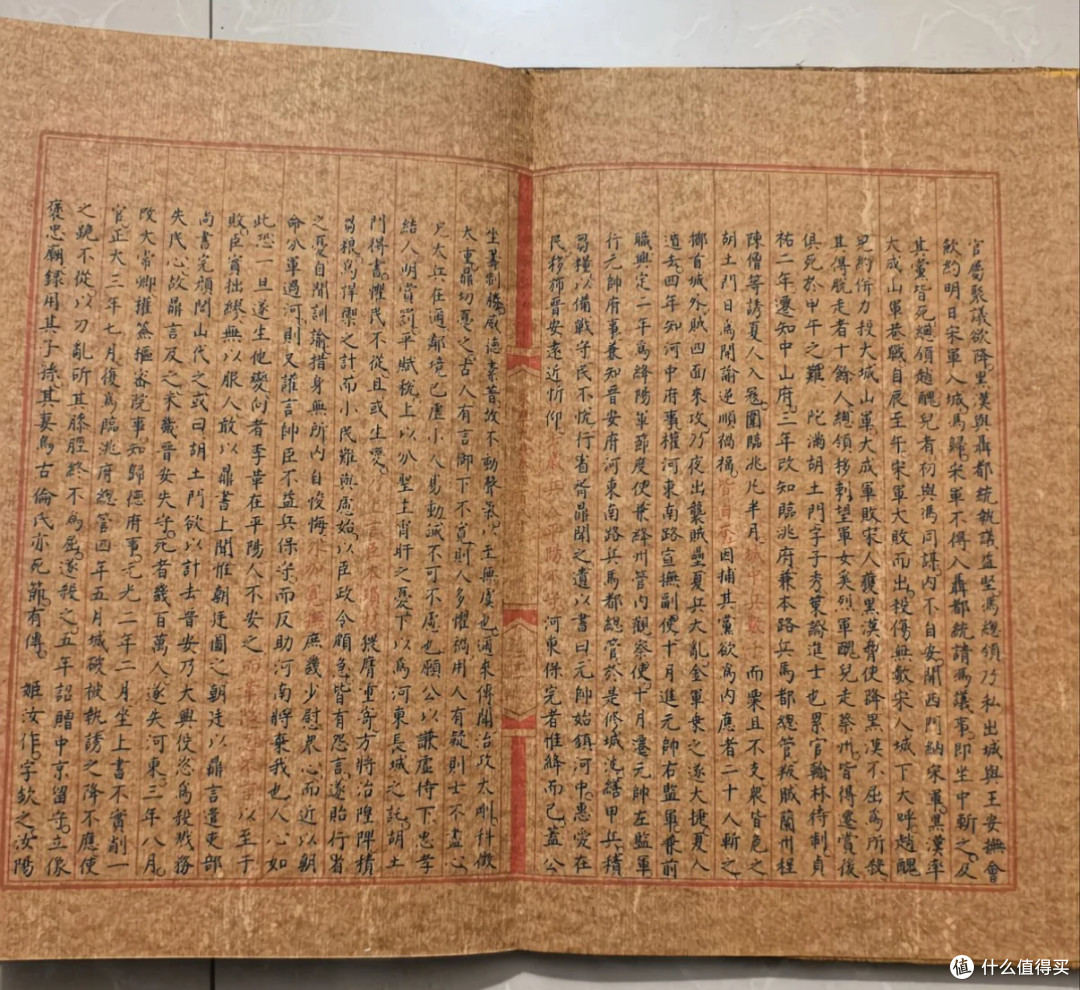 官屬聚議欲降黑漢與聶都統執議益堅馮總領乃私出城與王安撫會
飲約明日宋軍入城馮歸宋軍不得入聶都統請馮議事即坐中斬之及
其黨皆死總領趙醜兒者初與馮同謀內不自安開西門納宋軍黑漢率
大成山軍巷戰自展至午宋軍大敗而出投傷無數宋人城下大呼趙醜
兒約併力投大城山軍大成軍敗宋人獲黑漢脅使降黑漢不屈為所殺
其得脫走者十餘人總領移剌望軍女奚烈軍醜兒走蔡州皆得遷賞後
俱死於甲午之難 陀滿胡土門字子秀策論進士也累官翰林待制貞
祐二年遷知中山府三年改知臨洮府兼本路兵馬都總管叛賊蘭州程
陳僧等誘夏人入寇圍臨洮凡半月城中兵數千而粟且不支眾皆危之
胡土門日為開諭逆順禍福皆自奮因捕其黨欲為內應者二十人斬之
擲首城外賊四面來攻乃夜出襲賊壘夏兵大亂金軍乘之遂大捷夏人
遁去四年知河中府事權河東南路宣撫副使十月進元帥右監軍兼前
職興定二年為絳陽軍節度使兼絳州管內觀察使十月遷元帥左監軍
行元帥府事兼知晉安府河東南路兵馬都總管於是修城池繕甲兵積
芻糧以備戰守民不悅行省胥鼎聞之遺以書曰元帥始鎮河中惠愛在
民移旆晉安遠近忻仰去歲兵入平陽不守河東保完者惟絳而已蓋公
坐籌制勝威德素著故不動聲氣以至無虞也邇來傳聞治政太剛科徵
太重鼎切憂之古人有言御下不寬則人多懼禍用人有疑則士不盡心
況大兵在邇鄰境已虛小人易動誠不可不慮也願公以謙虛待下忠孝
結人明賞罰平賦稅上以分聖主宵旰之憂下以為河東長城之託胡土
門得書懼民不從且或生變乃上言臣本瑣材猥膺重寄方將治隍陴積
芻糧為捍禦之計而小民難與慮始以臣政令頗急皆有怨言遂貽行省
之憂自聞訓諭措身無所內自悛悔外加寬撫庶幾少慰眾心而近以朝
命分軍過河則又讙言帥臣不益兵保守而反助河南將棄我也人心如
此恐一旦遂生他變向者李革在平陽人不安之而革隱忍不言以至于
敗臣實拙繆無以服人敢以鼎書上聞惟朝廷圖之朝廷以鼎言遣吏部
尚書完顏閭山代之或曰胡土門欲以計去晉安乃大興役恣為殺戮務
失民心故鼎言及之未幾晉安失守死者幾百萬人遂失河東三年八月
改大常卿權簽樞密院事知歸德府事元光二年二月坐上書不實削一
官正大三年七月復為臨洮府總管四年五月城破被執誘之降不應使
之跪不從以刀亂斫其膝脛終不為屈遂殺之五年詔贈中京留守立像
褒忠廟錄用其子孫其妻烏古倫氏亦死節有傳 姬汝作字欽之汝陽
值 什么值得买